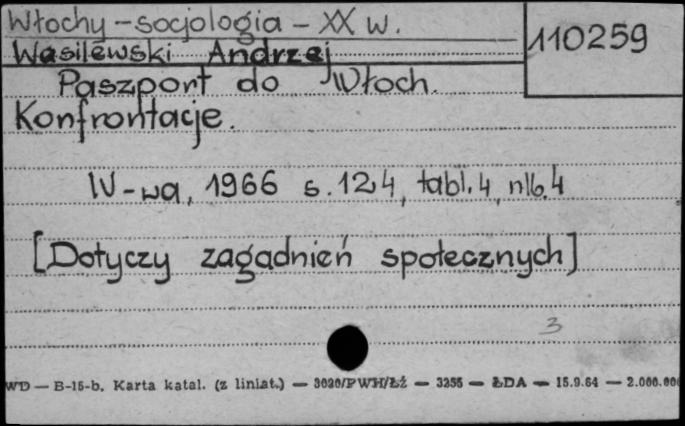 Włochy - socjologia - XX w.
110259
Wasilewski Andrzej
Paszport do Włoch.
Konfrontacje.
W-wa, 1966 s. 124, tabl. 4, nlb. 4
[Dotyczy zagadnień społecznych]
3
WD — B-15-b. Karta katal. (z liniat.) — 3020/PWH/Łż — 3255 — ŁDA — 15.9.64 — 2.000.000